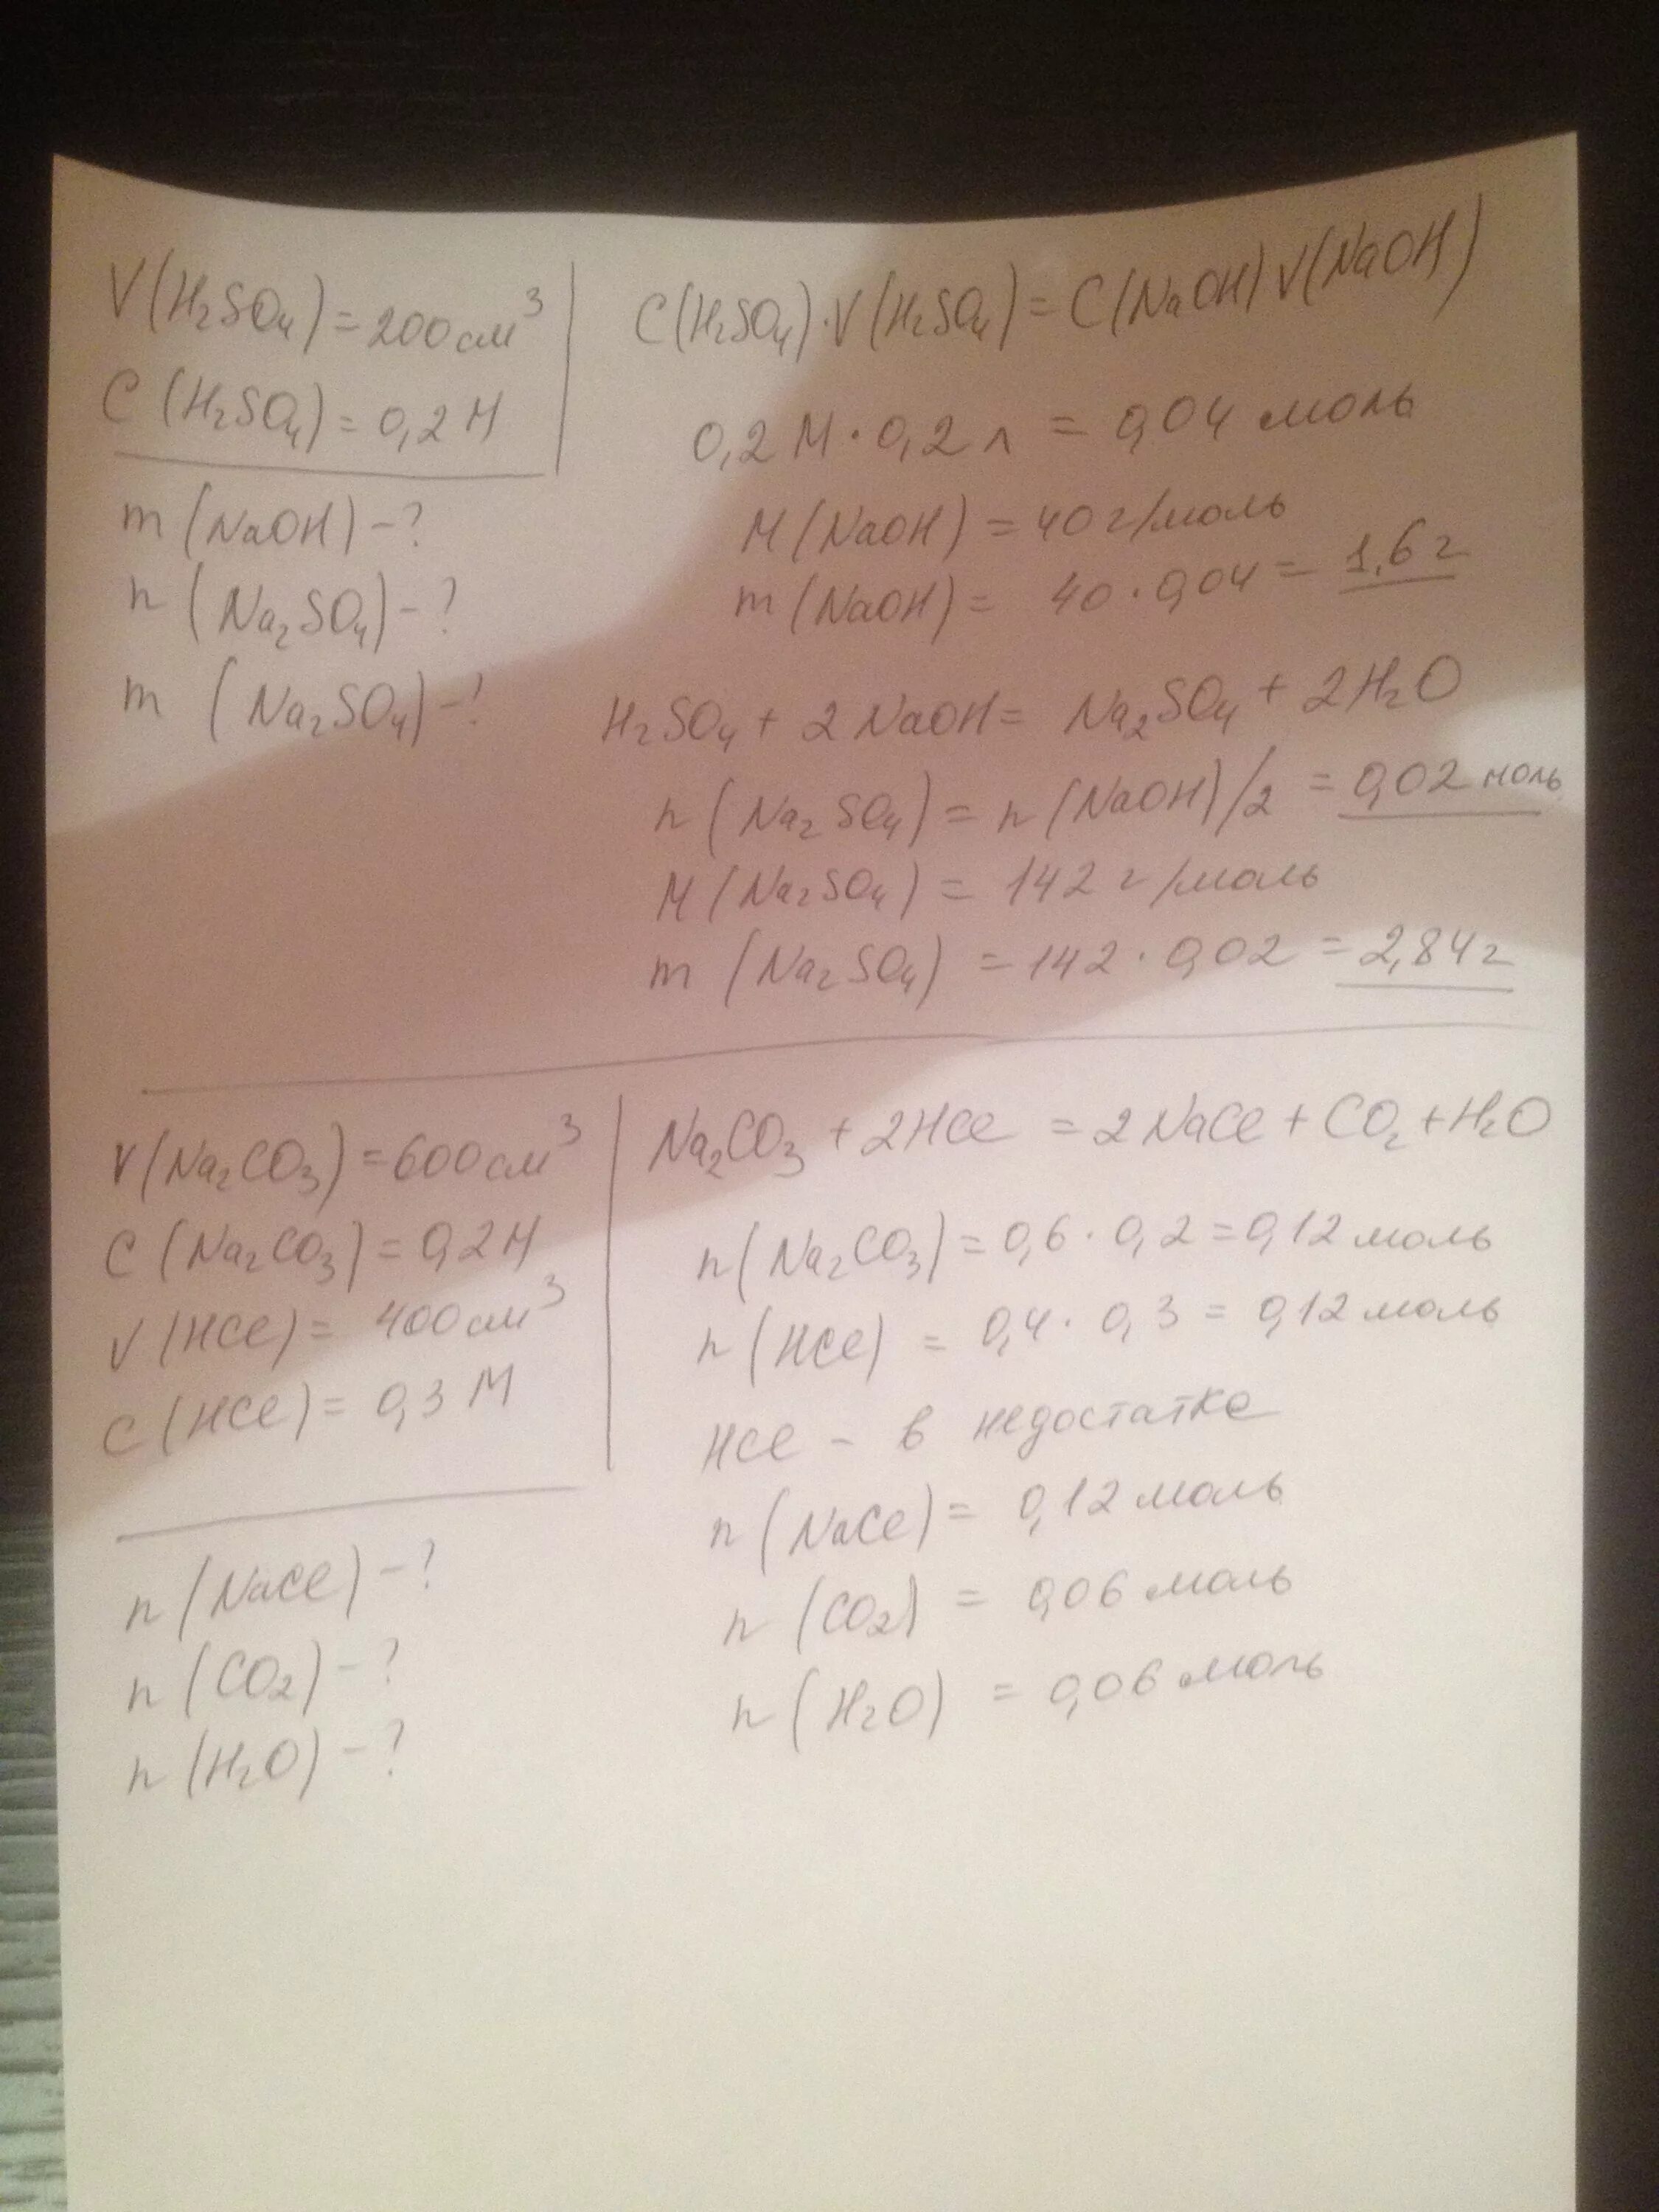 V(H₂SO₄) = 200 см³
C(H₂SO₄) = 0,2 М
m(NaOH) - ?
n(Na₂SO₄) - ?
m(Na₂SO₄) - ?
C(H₂SO₄)·V(H₂SO₄) = C(NaOH) V(NaOH)
0,2 М · 0,2 л = 0,04 моль
М(NaOH) = 40 г/моль
m(NaOH) = 40 · 0,04 = 1,6 г
H₂SO₄ + 2 NaOH = Na₂SO₄ + 2 H₂O
n(Na₂SO₄) = n(NaOH)/2 = 0,02 моль
М(Na₂SO₄) = 142 г/моль
m(Na₂SO₄) = 142 · 0,02 = 2,84 г
V(Na₂CO₃) = 600 см³
C(Na₂CO₃) = 0,2 М
V(HCl) = 400 см³
C(HCl) = 0,3 М
n(NaCl) - ?
n(CO₂) - ?
n(H₂O) - ?
Na₂CO₃ + 2HCl = 2 NaCl + CO₂ + H₂O
n(Na₂CO₃) = 0,6 · 0,2 = 0,12 моль
n(HCl) = 0,4 · 0,3 = 0,12 моль
HCl - в недостатке
n(NaCl) = 0,12 моль
n(CO₂) = 0,06 моль
n(H₂O) = 0,06 моль